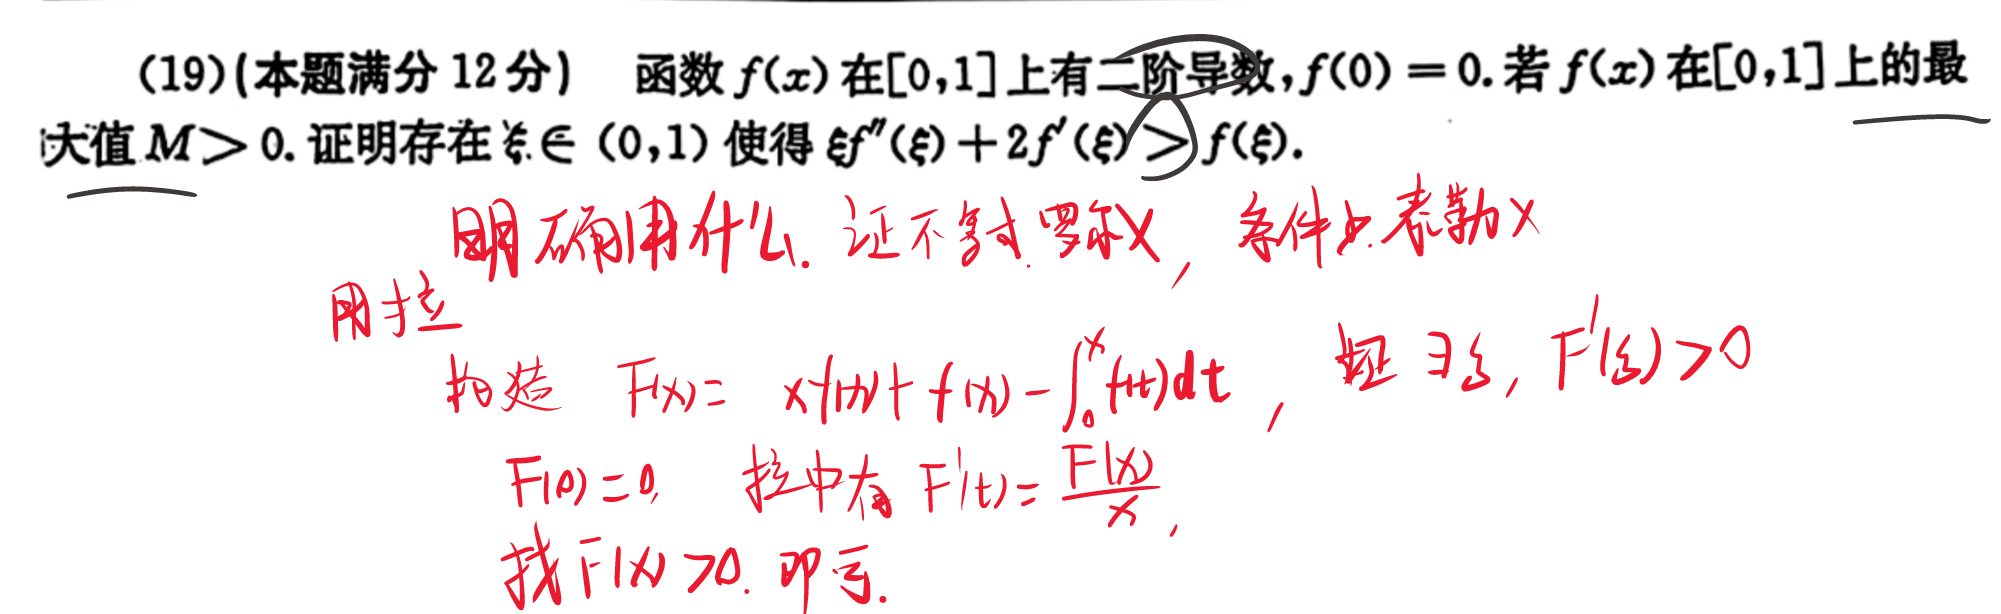 (19)(本题满分 12 分) 函数 f(x) 在[0,1]上有二阶导数,f(0) = 0. 若 f(x) 在[0,1]上的最
大值 M > 0. 证明存在 ξ ∈ (0,1) 使得 ξf″(ξ) + 2f′(ξ) > f(ξ).
明确用什么. 证不等式 罗尔X, 条件少. 泰勒X
用拉
构造 F(x) = xf'(x) + f(x) - ∫₀ˣ f(t)dt, 证 ∃ξ, F'(ξ) > 0
F(0) = 0, 拉中有 F'(t) = F(x)/x,
找 F(x) > 0. 即可.